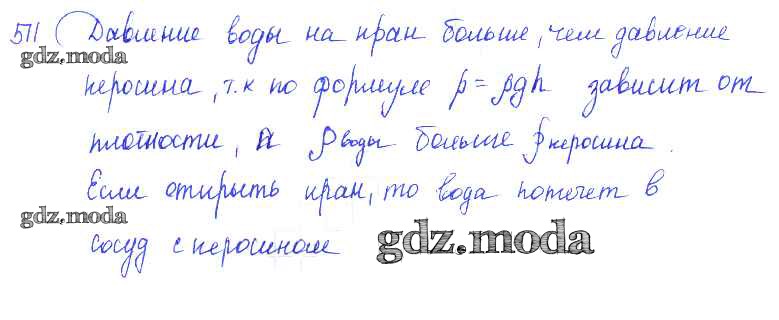 511 Давление воды на кран больше, чем давление
gdz.moda
керосина, т.к по формуле p = ρgh зависит от
плотности, а ρ воды больше ρ керосина.
Если открыть кран, то вода потечет в
gdz.moda
сосуд с керосином
gdz.moda